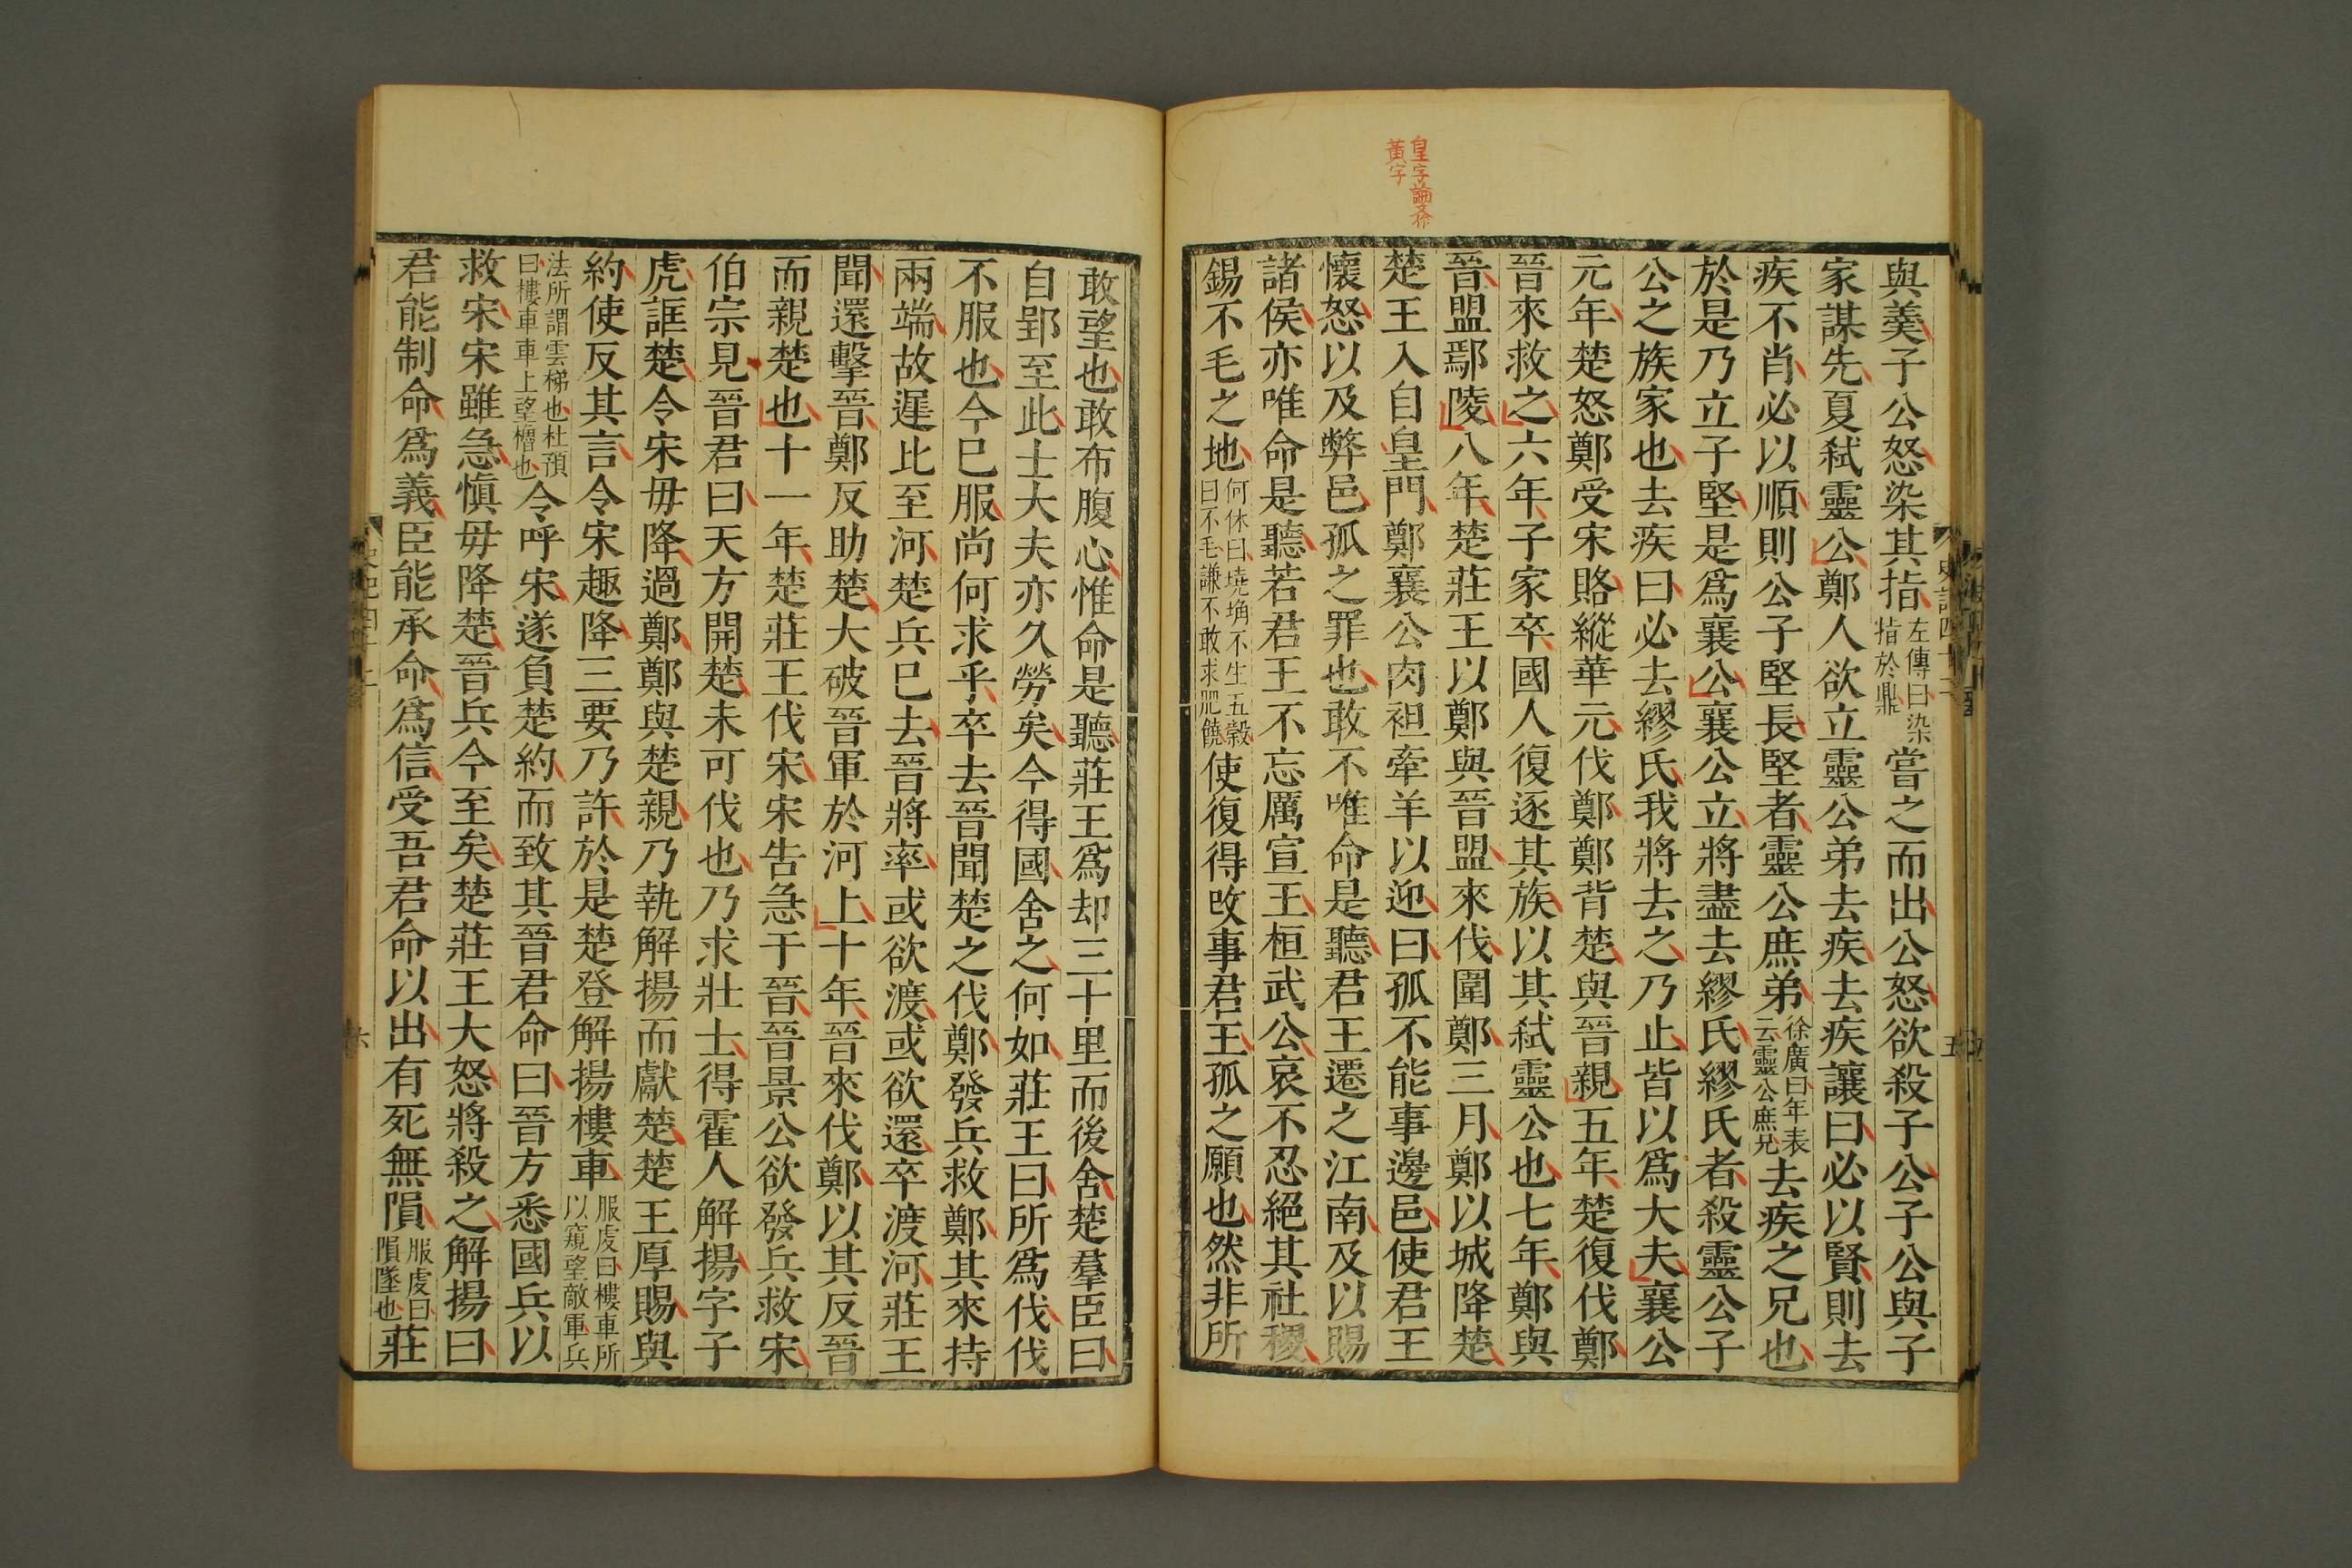 皇字論文作
黃字
與羹子公怒染其指左傳曰染指於鼎嘗之而出公怒欲殺子公子公與子
家謀先夏弑靈公鄭人欲立靈公弟去疾去疾讓曰必以賢則去
疾不肖必以順則公子堅長堅者靈公庶弟徐廣曰年表云靈公庶兄去疾之兄也
於是乃立子堅是爲襄公襄公立將盡去繆氏繆氏者殺靈公子
公之族家也去疾曰必去繆氏我將去之乃止皆以爲大夫襄公
元年楚怒鄭受宋賂縱華元伐鄭鄭背楚與晉親五年楚復伐鄭
晉來救之六年子家卒國人復逐其族以其弑靈公也七年鄭與
晉盟鄢陵八年楚莊王以鄭與晉盟來伐圍鄭三月鄭以城降楚
楚王入自皇門鄭襄公肉袒牽羊以迎曰孤不能事邊邑使君王
懷怒以及弊邑孤之罪也敢不唯命是聽君王遷之江南及以賜
諸侯亦唯命是聽若君王不忘厲宣王桓武公哀不忍絕其社稷
錫不毛之地何休曰墝埆不生五穀曰不毛謙不敢求肥饒使復得改事君王孤之願也然非所
敢望也敢布腹心惟命是聽莊王爲却三十里而後舍楚羣臣曰
自郢至此士大夫亦久勞矣今得國舍之何如莊王曰所爲伐伐
不服也今已服尚何求乎卒去晉聞楚之伐鄭發兵救鄭其來持
兩端故遲比至河楚兵已去晉將率或欲渡或欲還卒渡河莊王
聞還擊晉鄭反助楚大破晉軍於河上十年晉來伐鄭以其反晉
而親楚也十一年楚莊王伐宋宋告急于晉晉景公欲發兵救宋
伯宗見晉君曰天方開楚未可伐也乃求壯士得霍人解揚字子
虎誆楚令宋毋降過鄭鄭與楚親乃執解揚而獻楚楚王厚賜與
約使反其言令宋趣降三要乃許於是楚登解揚樓車服虔曰樓車所以窺望敵軍兵
法所謂雲梯也杜預曰樓車車上望櫓也令呼宋遂負楚約而致其晉君命曰晉方悉國兵以
救宋宋雖急愼毋降楚晉兵今至矣楚莊王大怒將殺之解揚曰
君能制命爲義臣能承命爲信受吾君命以出有死無隕服虔曰隕墜也莊
六